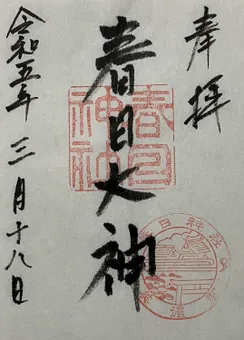 奉拝
春日大神
春日神社
令和五年三月十八日